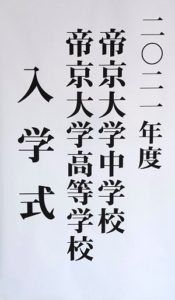 二〇二一年度
帝京大学中学校
帝京大学高等学校
入学式